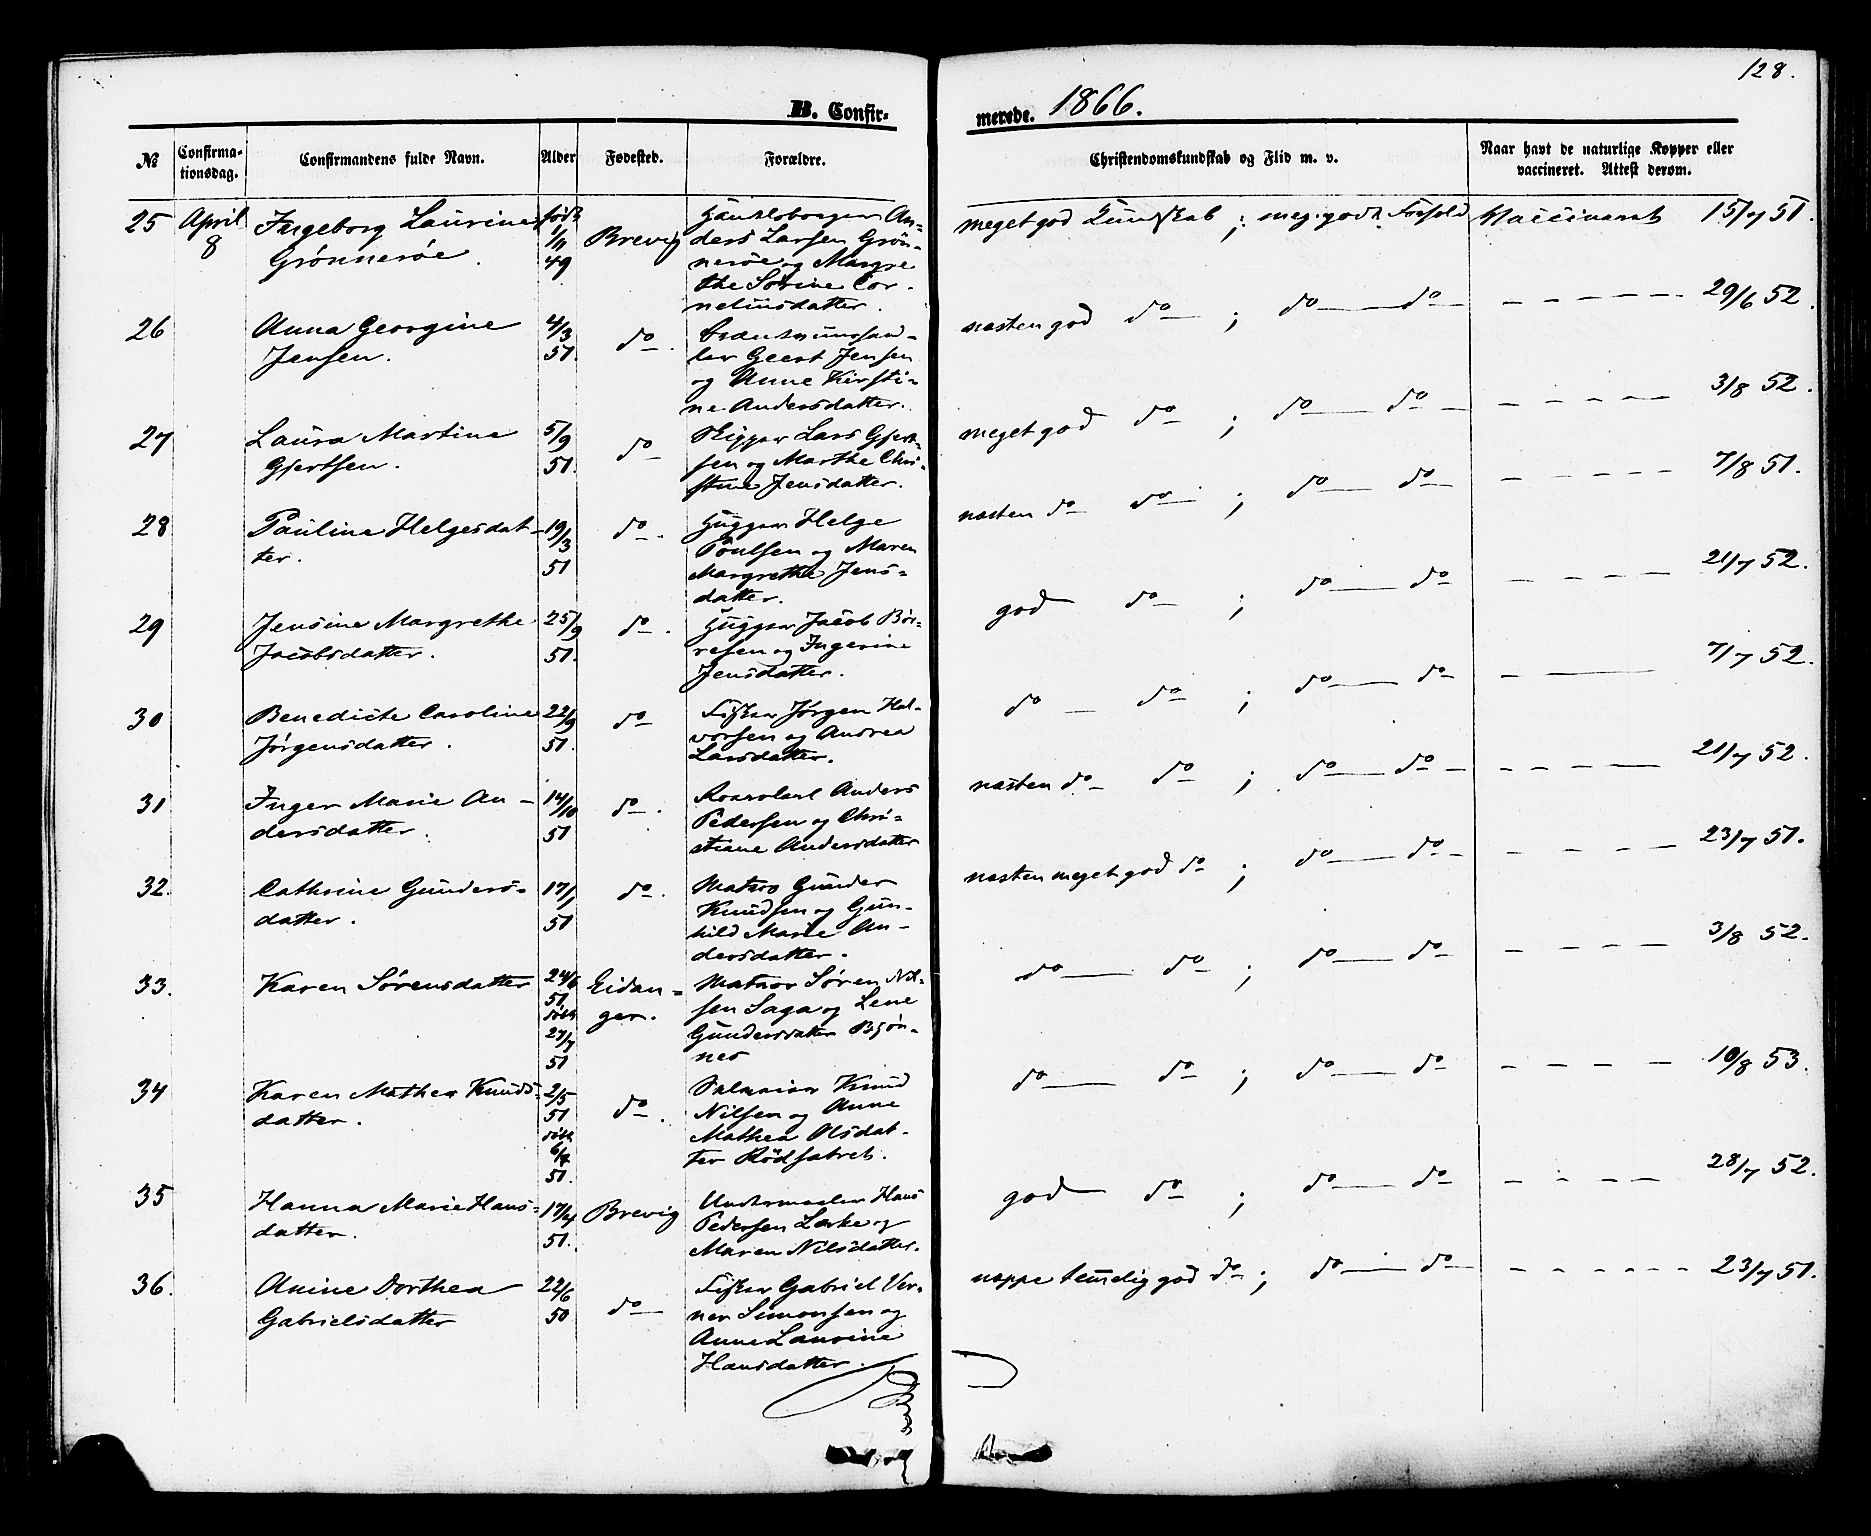 128.
B. Confir-
merede. 1866.
No
Confirma-
tionsdag.
Confirmandens fulde Navn.
Alder
Fødested.
Forældre.
Christendomskundskab og Flid m. v.
Naar havt de naturlige Kopper eller
vaccineret. Attest derom.
25 April 8
Ingeborg Laurine
Grønnerøe.
født
1/11
49
Brevig
An-
ders Larsen Grøn-
nerøe og Margre
the Sørine Cor-
neliusdatter.
meget god Kundskab; meg. godt Forhold
Vaccineret 15/7 51.
26
Anna Georgine
Jensen.
4/3
51.
do.
ler Geert Jensen
og Anne Kirsti-
ne Andersdatter.
næsten god do ; do do
29/6 52.
27
Laura Martine
Gjertsen.
5/9
51.
do
Skipper Lars Gjert-
sen og Marthe Chri-
stine Jensdatter.
meget god do ; do do
3/8 52.
28
Pauline Helgesdat-
ter.
19/3
51
do.
Hugger Helge
Poulsen og Maren
Margrethe Jens-
datter.
næsten do do ; do do
7/8 51.
29
Jensine Margrethe
Jacobsdatter.
25/9
51.
do.
Hugger Jacob Bør-
resen og Ingerine
Jensdatter.
god do ; do do
21/7 52.
30
Benedicte Caroline
Jørgensdatter.
22/9
51.
do
Fisker Jørgen Hal-
vorsen og Andrea
Larsdatter.
do do ; do do
7/7 52.
31
Inger Marie An-
dersdatter.
14/10
51
do.
Anders
Pedersen og Chri-
stiane Andersdatter
næsten do do ; do do
21/7 52.
32.
Cathrine Gunders-
datter.
17/1
51
do.
Matros Gunder
Knudsen og Gun-
hild Marie An-
dersdatter.
næsten meget god do ; do do
23/7 51.
33.
Karen Sørensdatter
24/6
51.
døbt
27/7
51
Eidan-
ger.
Matros Søren Nil-
sen Saga og Lene
Gundersdatter Bjøn-
nes
do do ; do do
3/8 52.
34
Karen Mathea Knuds-
datter.
2/5
51
døbt
6/7
51.
do.
Knud
Nilsen og Anne
Mathea Olsdat-
ter
do do ; do do
10/8 53.
35
Hanna Marie Hans-
datter.
17/4
51.
Brevig
Hans
Pedersen Lærke og
Maren Nilsdatter.
god do ; do do
28/7 52.
36.
Anine Dorthea
Gabrielsdatter
22/6
50
do
Fisker Gabriel Ver-
ner Simonsen og
Anne Laurine
Hansdatter.
neppe temelig god do ; do do
23/7 51.